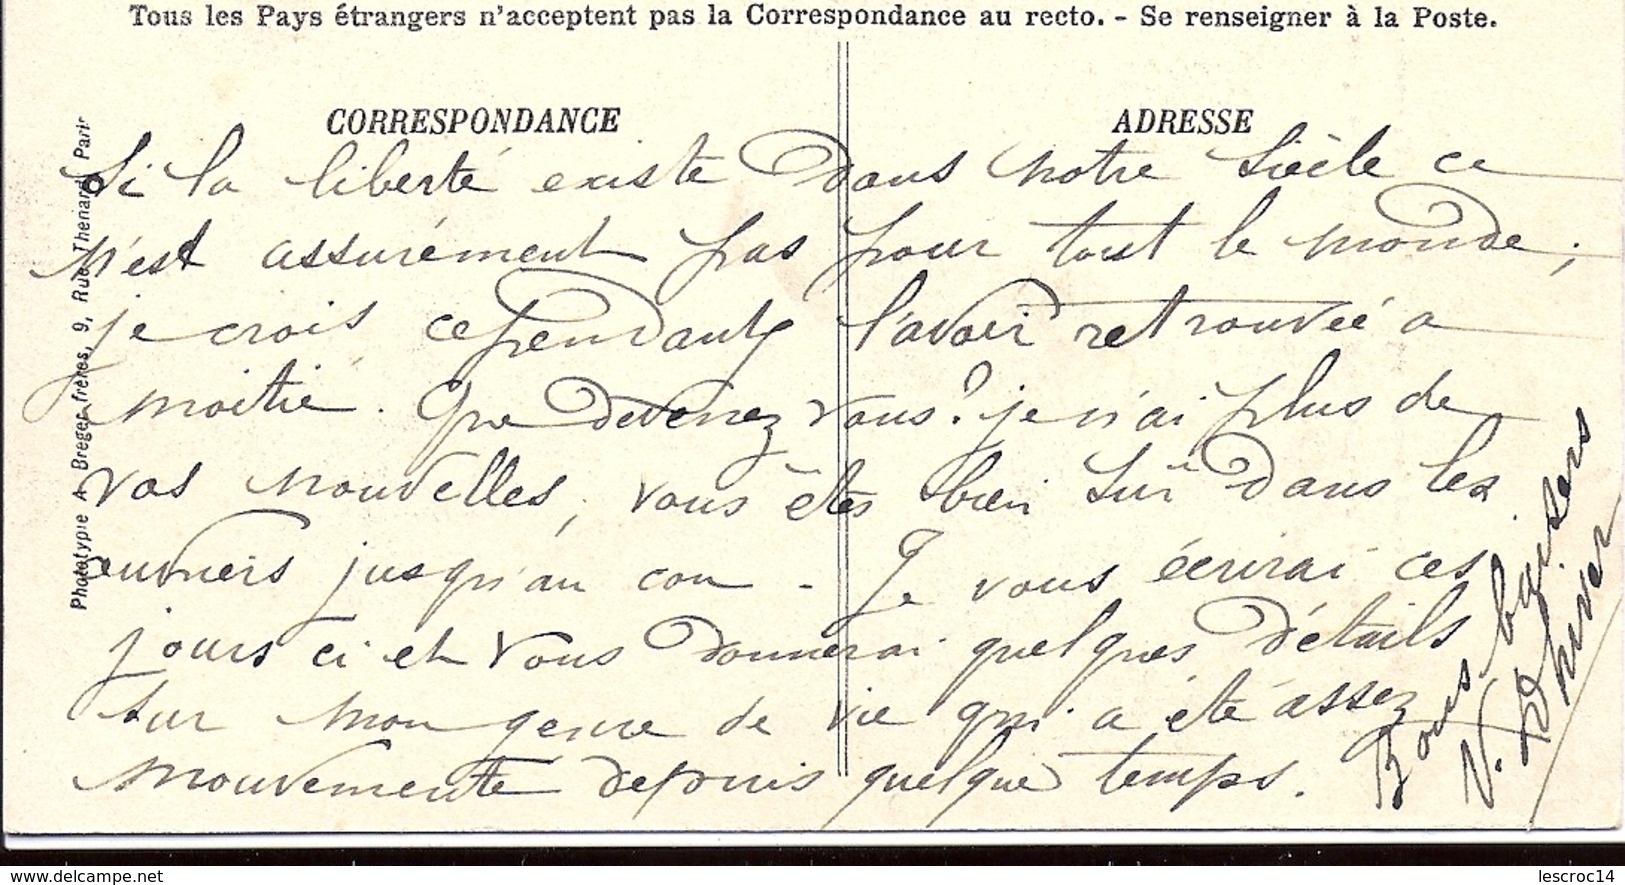 Tous les Pays étrangers n'acceptent pas la Correspondance au recto. - Se renseigner à la Poste.
CORRESPONDANCE
ADRESSE
Si la liberté existe dans notre siècle ce
n'est assurément pas pour tout le monde;
je crois cependant l'avoir retrouvée a
moitié. Que devenez vous? je n'ai plus de
vos nouvelles, vous êtes bien sûr dans les
jusqu'au cou - Je vous écrirai ces
jours ci et vous donnerai quelques détails
sur mon genre de vie qui a été assez
mouvementé depuis quelque temps.
Bons baisers
V. Dhiver
Phototypie A Breger frères, 9, Rue Thenard Paris
www.delcampe.net
lescroc14